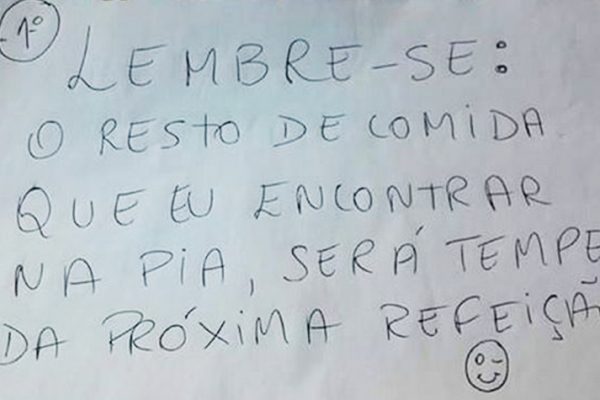 1º
LEMBRE-SE:
O RESTO DE COMIDA
QUE EU ENCONTRAR
NA PIA, SERÁ TEMPE
DA PRÓXIMA REFEIÇÃ